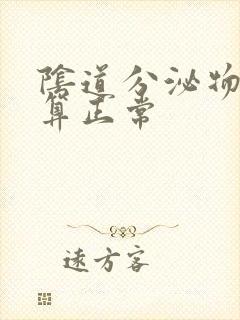 陰道分泌物
算正常
遠方客